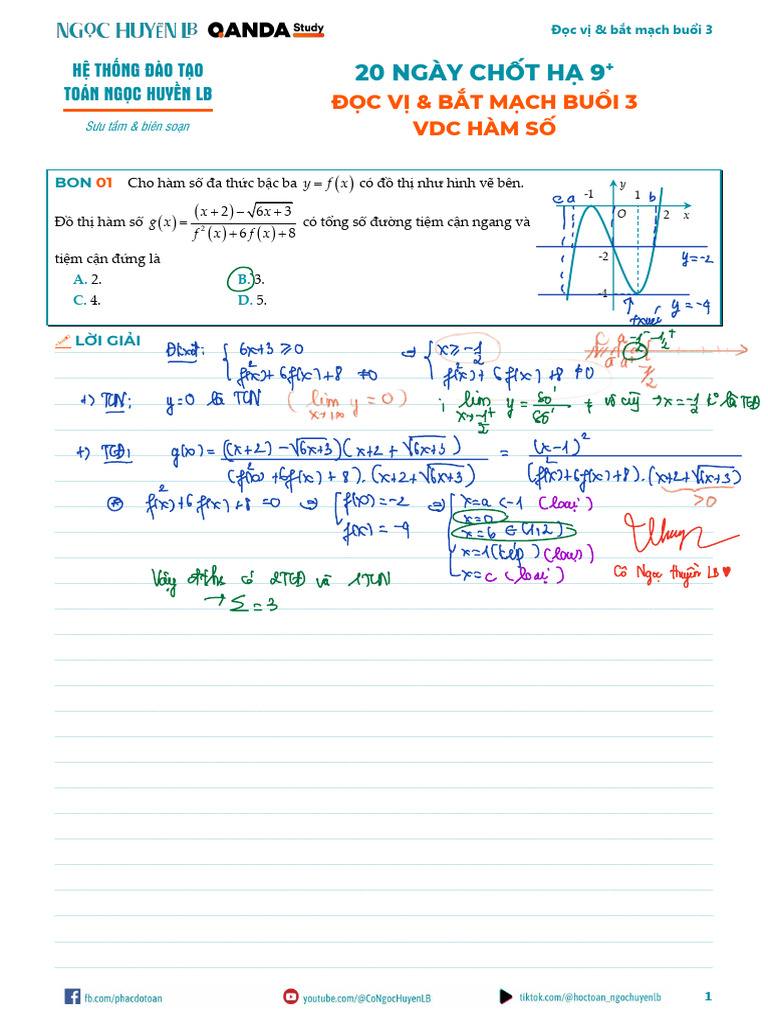 NGỌC HUYỀN LB QANDA Study
Đọc vị & bắt mạch buổi 3
HỆ THỐNG ĐÀO TẠO
TOÁN NGỌC HUYỀN LB
Sưu tầm & biên soạn
20 NGÀY CHỐT HẠ 9+
ĐỌC VỊ & BẮT MẠCH BUỔI 3
VDC HÀM SỐ
BON 01 Cho hàm số đa thức bậc ba y = f(x) có đồ thị như hình vẽ bên.
Đồ thị hàm số g(x) = ((x+2) − √(6x+3)) / (f²(x) + 6f(x) + 8) có tổng số đường tiệm cận ngang và
tiệm cận đứng là
A. 2. B. 3.
C. 4. D. 5.
c a -1 1 b y
O 2 x
-2 y = -2
-4 y = -4
LỜI GIẢI
6x+3 ≥ 0 ⇒ x ≥ -1/2
f²(x) + 6f(x) + 8 ≠0 f²(x) + 6f(x) + 8 ≠0
+) TCN: y=0 là TCN (lim y = 0)
+) TCĐ: g(x) = ((x+2) − √(6x+3))(x+2 + √(6x+3)) / (f²(x) + 6f(x) + 8).(x+2+√(6x+3)) = (x-1)² / (f²(x)+6f(x)+8).(x+2+√(6x+3))
>0
f²(x) + 6f(x) + 8 =0 ⇒ f(x) = -2 ⇒ x=a < -1 (loại)
x=0
f(x) = -4 x=b ∈ (1,2)
x=1 (kép) (loại)
x=c (loại)
Cô Ngọc Huyền LB ♥
Vậy đths có 2TCĐ và 1TCN
→ Σ = 3
fb.com/phacdotoan
youtube.com/@CoNgocHuyenLB
tiktok.com/@hoctoan_ngochuyenlb
1